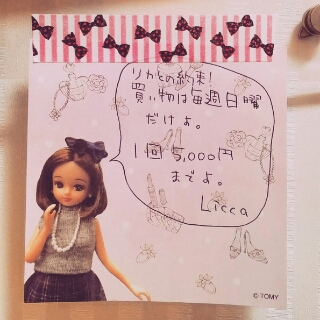 リカとの約束!
買い物は毎週日曜
だけよ。
1回 5,000円
までよ。
Licca
© TOMY